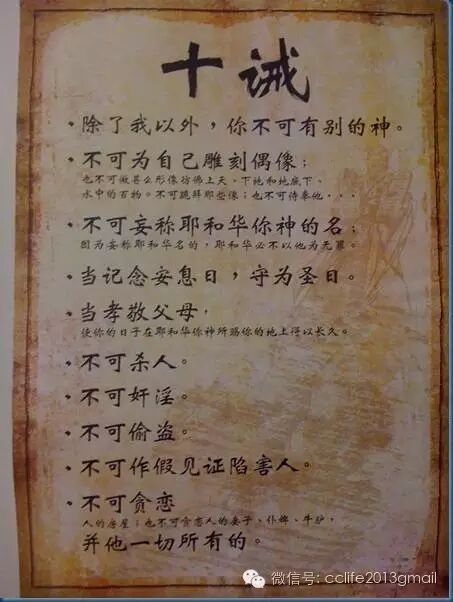 十诫
·除了我以外，你不可有别的神。
·不可为自己雕刻偶像；
也不可做甚么形像彷彿上天、下地和地底下、
水中的百物。不可跪拜那些像；也不可侍奉他，···
·不可妄称耶和华你神的名；
因为妄称耶和华名的，耶和华必不以他为无罪。
·当记念安息日，守为圣日。
·当孝敬父母，
使你的日子在耶和华你神所赐你的地上得以长久。
·不可杀人。
·不可奸淫。
·不可偷盗。
·不可作假见证陷害人。
·不可贪恋
人的房屋；也不可贪恋人的妻子、仆婢、牛驴，
并他一切所有的。
微信号: cclife2013gmail